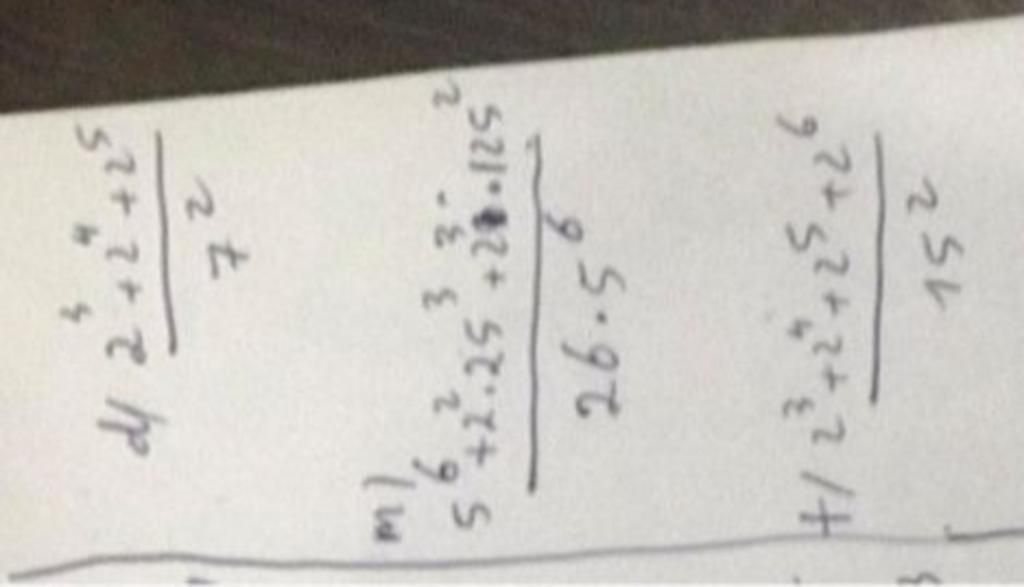 d/ 2³+2⁴+2⁵
7²
m)
5⁶+2².25³+2³.125²
26.5⁶
f/ 2³+2⁴+2⁵+2⁶
15²